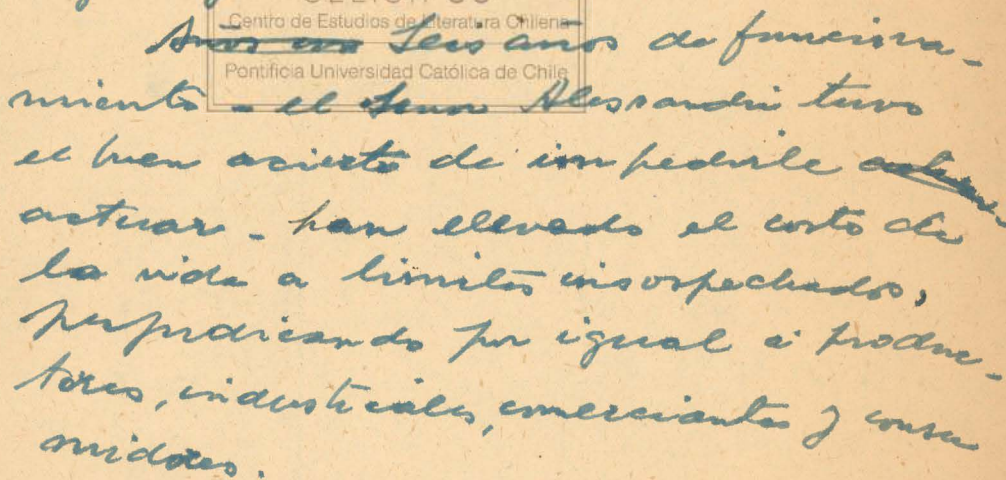 Centro de Estudios de Literatura Chilena
Seis años de funciona-
Pontificia Universidad Católica de Chile
miento - el Señor Alessandri tuvo
el buen acierto de impedirle
actuar - han elevado el costo de
la vida a limites insospechados,
perjudicando por igual a produc-
tores, industriales, comerciantes y consu
midores.